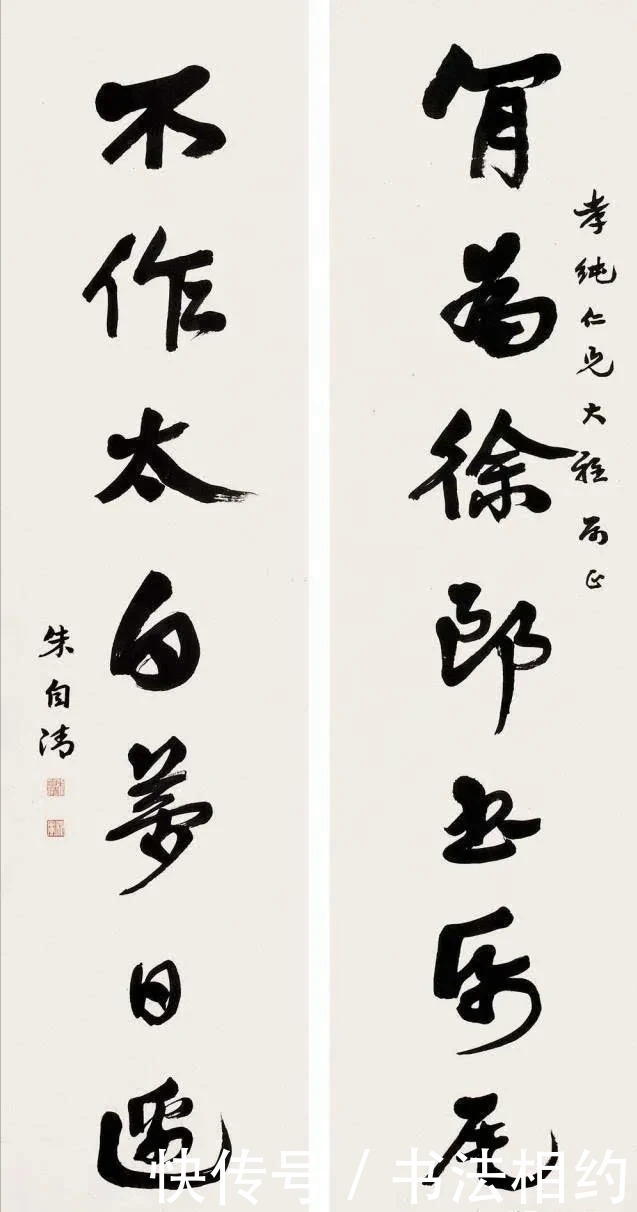 孝純仁兄大雅屬正
肎為徐郎書帋尾
不作太白夢日邊
朱自清
快传号 / 书法相约